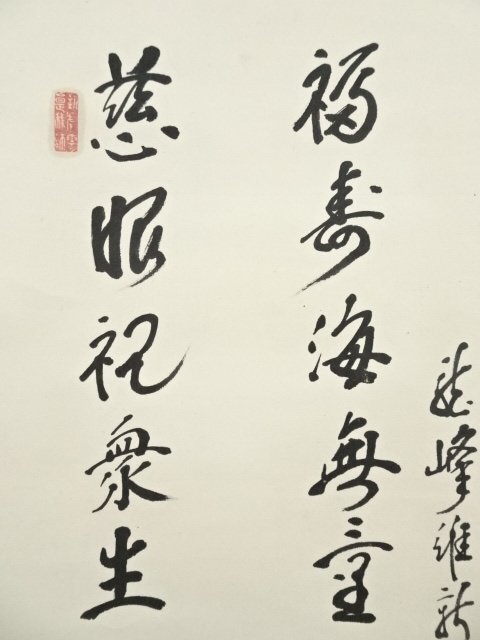 慈眼視衆生
福寿海無量
龍峰維新